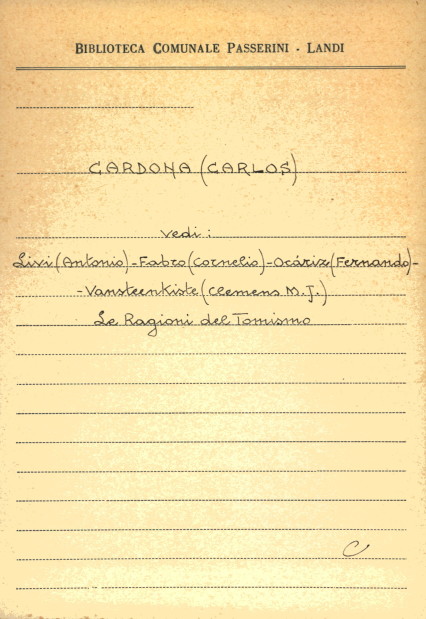 BIBLIOTECA COMUNALE PASSERINI - LANDI
CARDONA (CARLOS)
vedi:
Livi (Antonio) - Fabro (Cornelio) - Ocáriz (Fernando) -
- Vansteenkiste (Clemens M.J.)
Le Ragioni del Tomismo
C